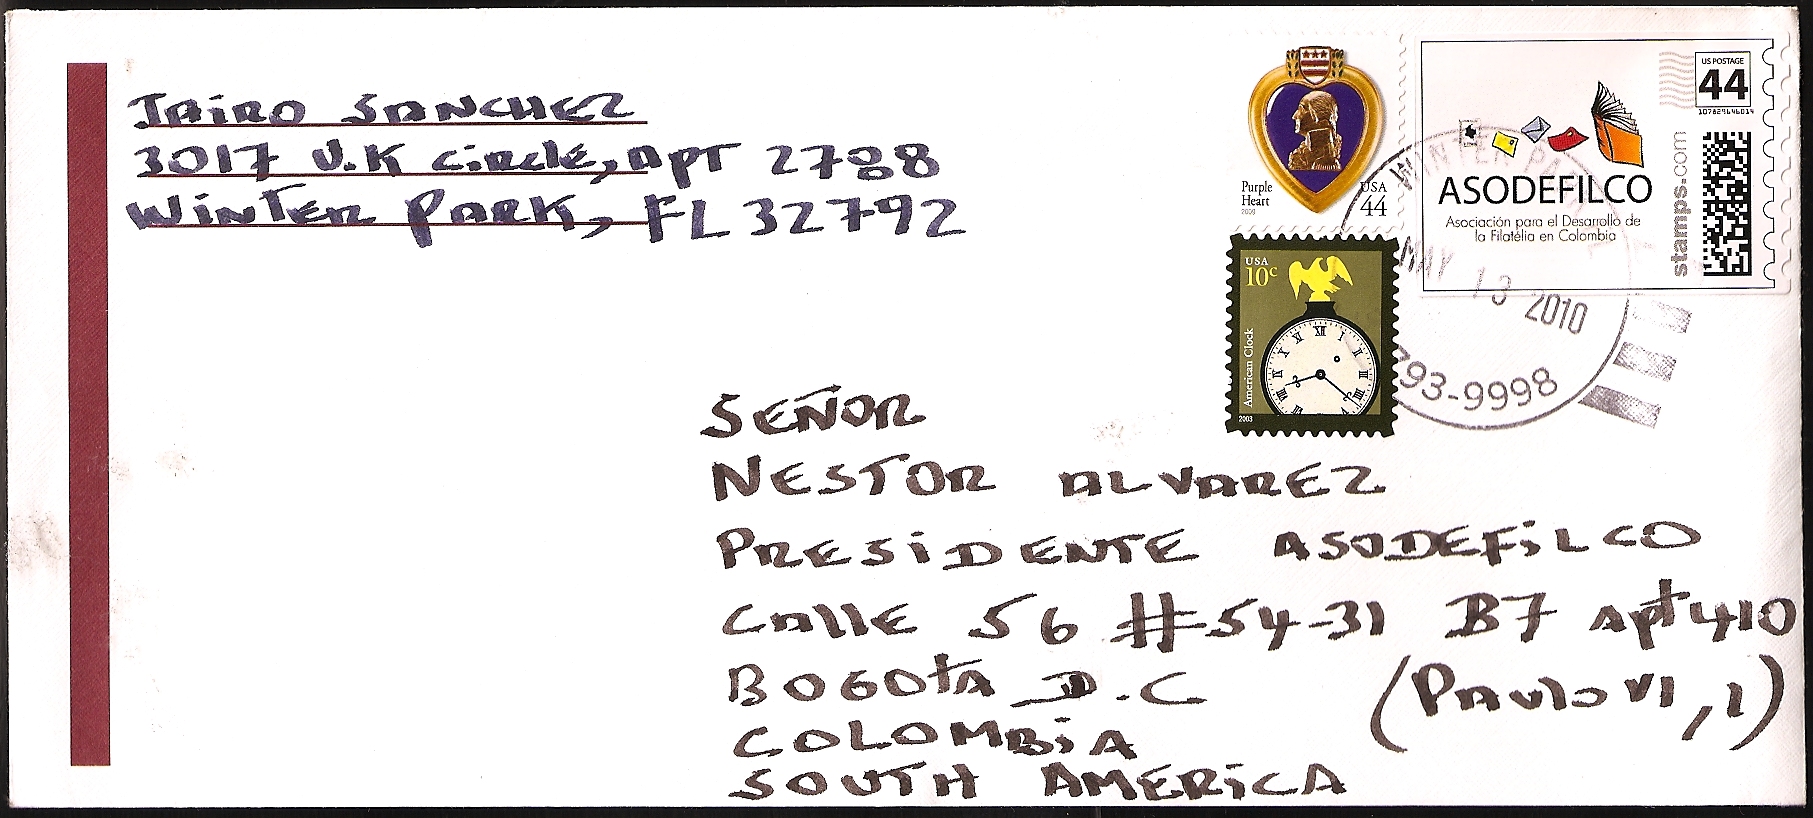 JAIRO SANCHEZ
3017 U.K CIRCLE, APT 2788
WINTER PARK, FL 32792
Purple
Heart
2009
USA
44
US POSTAGE
44
ASODEFILCO
Asociación para el Desarrollo de
la Filatélia en Colombia
stamps.com
USA
10c
American Clock
2003
XII I II III IIII VIII IX X XI
WINTER PA
MAY 13 2010
793-9998
SEÑOR
NESTOR ALVAREZ
PRESIDENTE ASODEFILCO
Calle 56 #54-31 B7 Apt 410
BOGOTA D.C (Paulo VI, 1)
COLOMBIA
SOUTH AMERICA